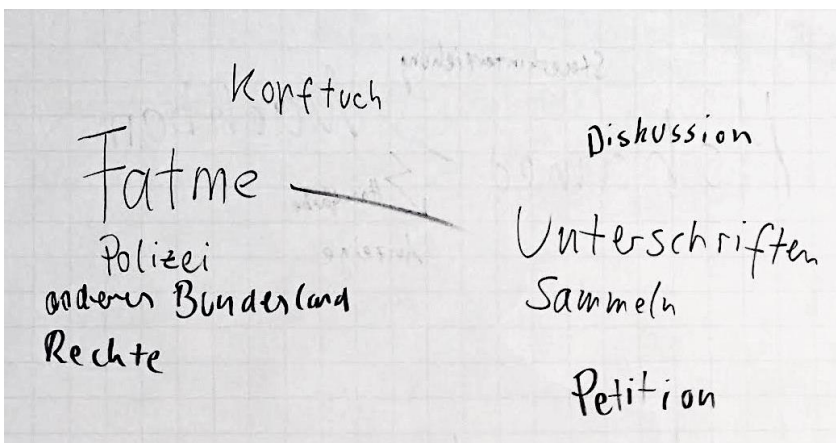 Kopftuch
Fatme
Polizei
anderes Bundesland
Rechte
Diskussion
Unterschriften
Sammeln
Petition